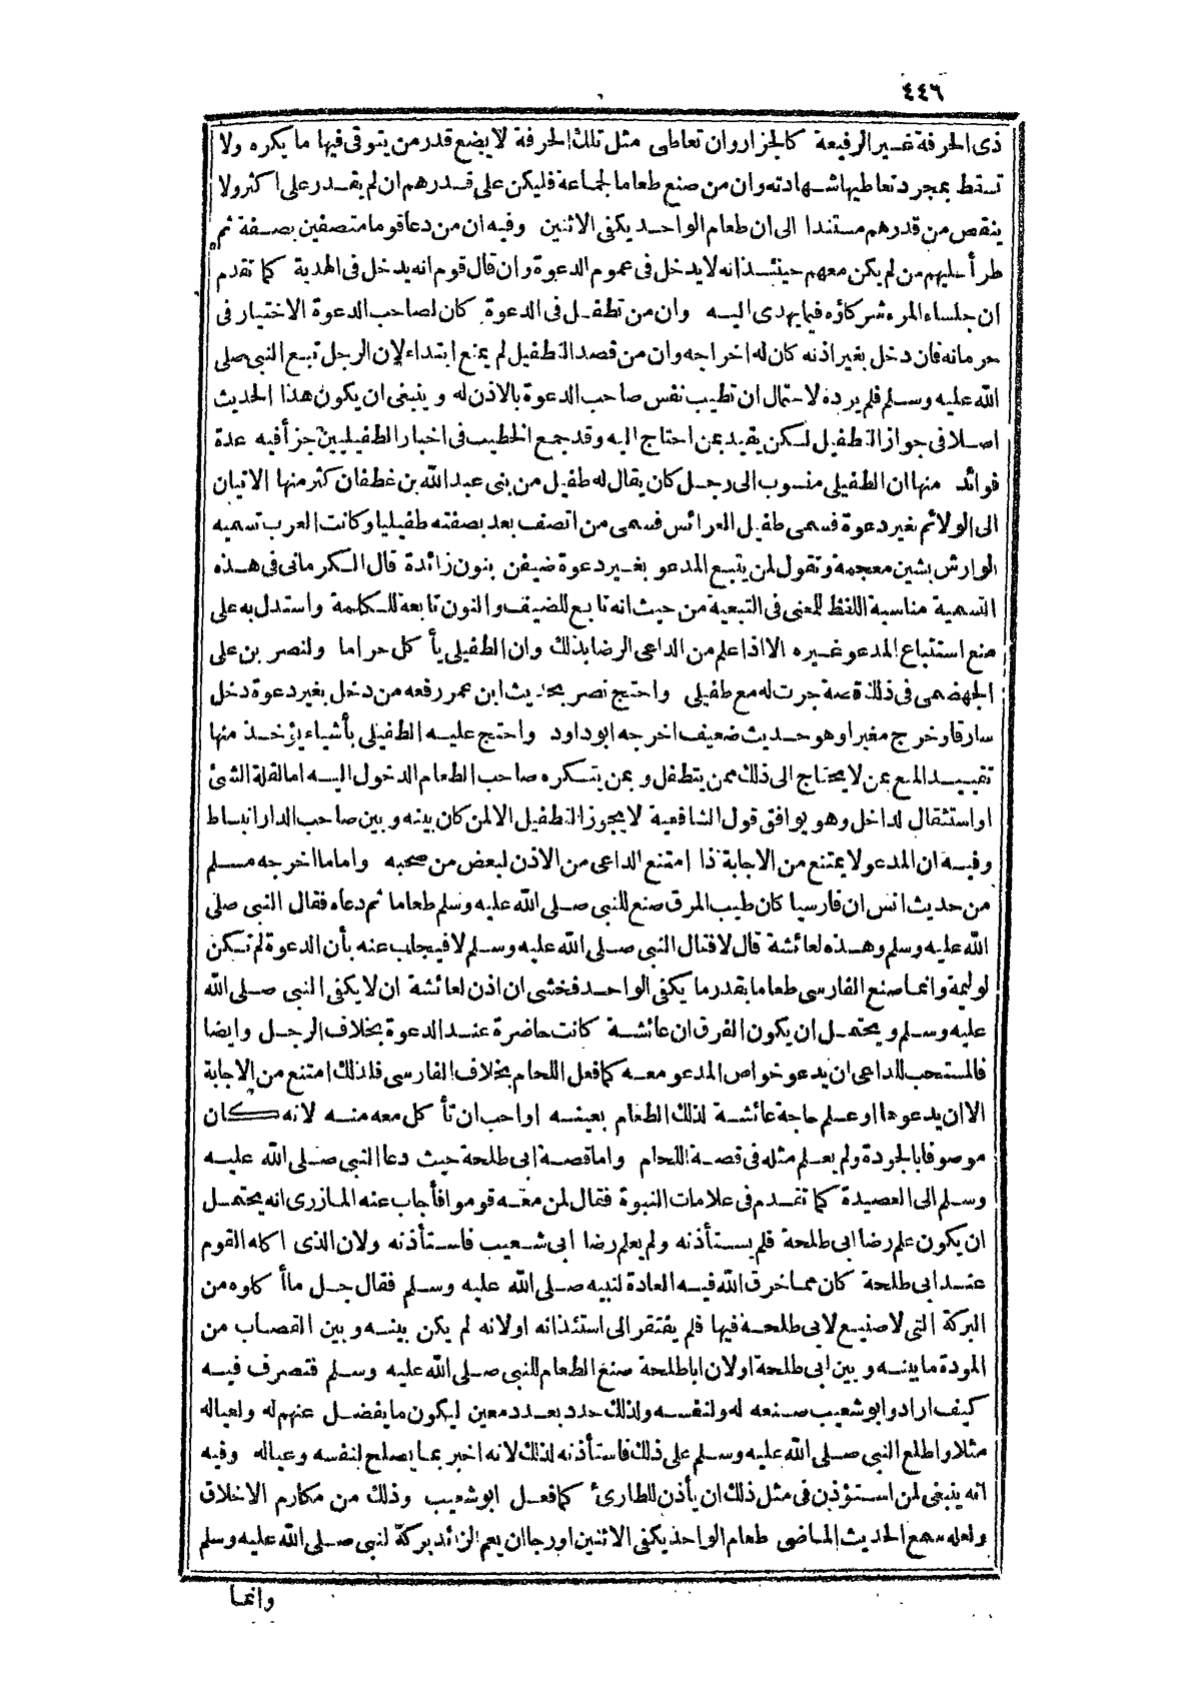 ٤٤٦
ذى الحرفة غير الرفيعة كالجزار وان تعاطى مثل تلك الحرفة لا يضع قدر من يتوقى فيها ما يكره ولا
تسقط بمجرد تعاطيها شهادته وان من صنع طعاما لجماعة فليكن على قدرهم ان لم يقدر على اكثر ولا
ينقص من قدرهم مستندا الى ان طعام الواحد يكفى الاثنين وفيه ان من دعا قوما متصفين بصفة ثم
طرأ عليهم من لم يكن معهم حينئذ انه لا يدخل فى عموم الدعوة وان قال قوم انه يدخل فى الهدية كما تقدم
ان جلساء المرء شركاؤه فيما يهدى اليه وان من تطفل فى الدعوة كان لصاحب الدعوة الاختيار فى
حرمانه فان دخل بغير اذنه كان له اخراجه وان من قصد التطفيل لم يمنع ابتداء لان الرجل تبع النبى صلى
الله عليه وسلم فلم يرده لاحتمال ان تطيب نفس صاحب الدعوة بالاذن له وينبغى ان يكون هذا الحديث
اصلا فى جواز التطفيل لكن يقيد بمن احتاج اليه وقد جمع الخطيب فى اخبار الطفيليين جزأ فيه عدة
فوائد منها ان الطفيلى منسوب الى رجل كان يقال له طفيل من بنى عبد الله بن غطفان كثر منها الاتيان
الى الولائم بغير دعوة فسمى طفيل العرائس فسمى من اتصف بعد بصفته طفيليا وكانت العرب تسميه
الوارش بشين معجمة وتقول لمن يتبع المدعو بغير دعوة ضيفن بنون زائدة قال الكرمانى فى هذه
التسمية مناسبة اللفظ للمعنى فى التبعية من حيث انه تابع للضيف والنون تابعة للكلمة واستدل به على
منع استتباع المدعو غيره الا اذا علم من الداعى الرضا بذلك وان الطفيلى يأكل حراما ولنصر بن على
الجهضمى فى ذلك قصة جرت له مع طفيلى واحتج نصر بحديث ابن عمر رفعه من دخل بغير دعوة دخل
سارقا وخرج مغيرا وهو حديث ضعيف اخرجه ابو داود واحتج عليه الطفيلى بأشياء يؤخذ منها
تقييد المنع بمن لا يحتاج الى ذلك ممن يتطفل وبمن يتكره صاحب الطعام الدخول اليه اما لقلة الشئ
او استثقال لداخل وهو يوافق قول الشافعية لا يجوز التطفيل الا لمن كان بينه وبين صاحب الدار انبساط
وفيه ان المدعو لا يمتنع من الاجابة ذا امتنع الداعى من الاذن لبعض من صحبه واما ما اخرجه مسلم
من حديث انس ان فارسيا كان طيب المرق صنع للنبى صلى الله عليه وسلم طعاما ثم دعاه فقال النبى صلى
الله عليه وسلم وهذه لعائشة قال لا فقال النبى صلى الله عليه وسلم لا فيجاب عنه بأن الدعوة لم تكن
لوليمة وانما صنع الفارسى طعاما بقدر ما يكفى الواحد فخشى ان اذن لعائشة ان لا يكفى النبى صلى الله
عليه وسلم ويحتمل ان يكون الفرق ان عائشة كانت حاضرة عند الدعوة بخلاف الرجل وايضا
فالمستحب للداعى ان يدعو خواص المدعو معه كما فعل اللحام بخلاف الفارسى فلذلك امتنع من الاجابة
الا ان يدعوها او علم حاجة عائشة لذلك الطعام بعينه او احب ان تأكل معه منه لانه كان
موصوفا بالجودة ولم يعلم مثله فى قصة اللحام واما قصة ابى طلحة حيث دعا النبى صلى الله عليه
وسلم الى العصيدة كما تقدم فى علامات النبوة فقال لمن معه قوموا فأجاب عنه المازرى انه يحتمل
ان يكون علم رضا ابى طلحة فلم يستأذنه ولم يعلم رضا ابى شعيب فاستأذنه ولان الذى اكله القوم
عند ابى طلحة كان مما خرق الله فيه العادة لنبيه صلى الله عليه وسلم فقال جل ماأ كلوه من
البركة التى لا صنيع لابى طلحة فيها فلم يفتقر الى استئذانه او لانه لم يكن بينه وبين القصاب من
المودة ما بينه وبين ابى طلحة او لان ابا طلحة صنع الطعام للنبى صلى الله عليه وسلم فتصرف فيه
كيف اراد وابو شعيب صنعه له ولنفسه ولذلك حدد بعدد معين ليكون ما يفضل عنهم له ولعياله
مثلا واطلع النبى صلى الله عليه وسلم على ذلك فاستأذنه لذلك لانه اخبر بما يصلح لنفسه وعياله وفيه
انه ينبغى لمن استؤذن فى مثل ذلك ان يأذن للطارئ كما فعل ابو شعيب وذلك من مكارم الاخلاق
ولعله سمع الحديث الماضى طعام الواحد يكفى الاثنين او رجا ان يعم الزائد بركة لنبى صلى الله عليه وسلم
وانما